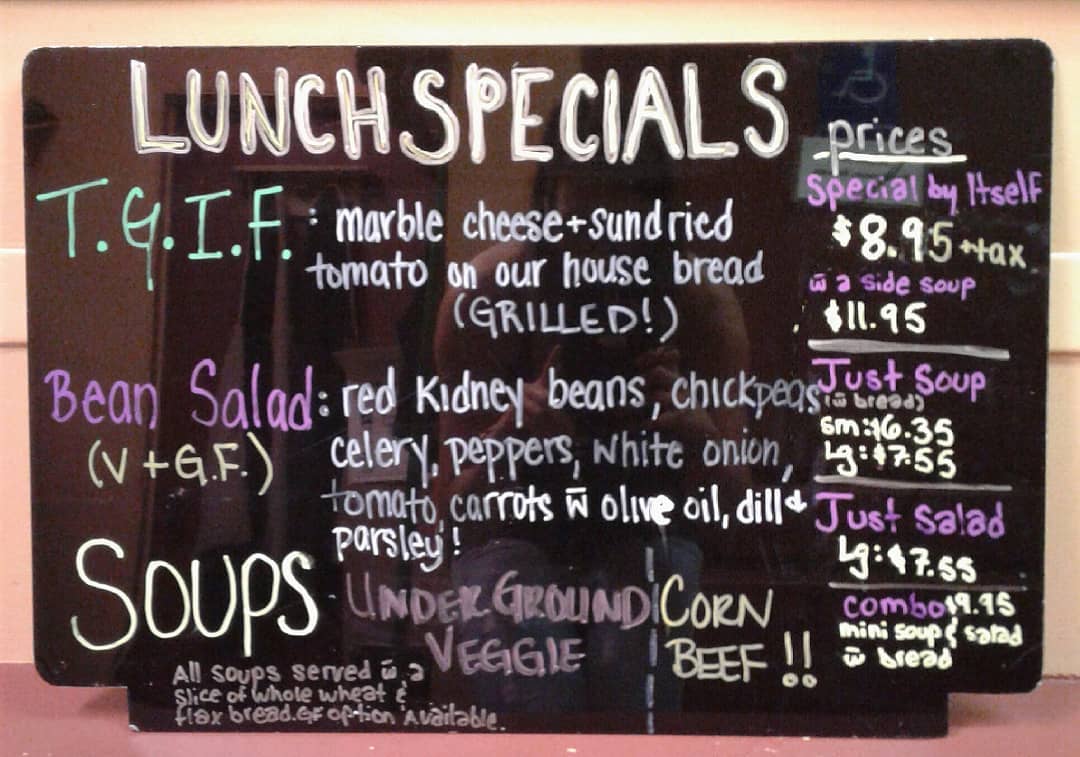 LUNCH SPECIALS
T.G.I.F. : marble cheese + sundried
tomato on our house bread
(GRILLED!)
Bean Salad : red Kidney beans, chickpeas
(V + G.F.) celery, peppers, white onion,
tomato, carrots w̄ olive oil, dill &
parsley!
SOUPS UNDERGROUND VEGGIE | CORN BEEF !!
All soups served w̄ a
slice of whole wheat &
flax bread. GF option Available.
prices
Special by Itself
$8.95 + tax
w̄ a side soup
$11.95
Just Soup
(w̄ bread)
sm: $6.35
Lg: $7.55
Just Salad
Lg: $7.55
combo $9.95
mini soup & salad
w̄ bread